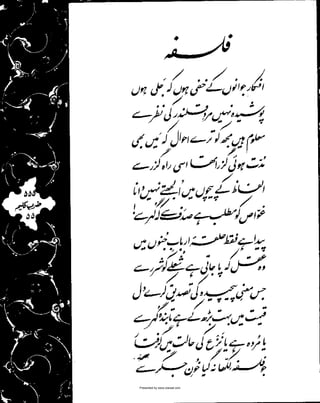 فلسفہ
افکار جوانوں کے خفی ہوں کہ جلی ہوں
پوشیدہ نہیں مردِ قلندر کی نظر سے
معلوم ہیں مجھ کو ترے احوال کہ میں بھی
مدت ہوئی گزرا تھا اسی راہ گزر سے
الفاظ کے پیچوں میں الجھتے نہیں دانا
غواص کو مطلب ہے صدف سے کہ گہر سے!
پیدا ہے فقط حلقۂ اربابِ جنوں میں
وہ عقل کہ پا جاتی ہے شعلے کو شرر سے
جس معنیِ پیچیدہ کی تصدیق کرے دل
قیمت میں بہت بڑھ کے ہے تابندہ گہر سے
یا مردہ ہے یا نزع کی حالت میں گرفتار
جو فلسفہ لکھا نہ گیا خونِ جگر سے
ضربِ کلیم
Presented by www.iqbalal.com